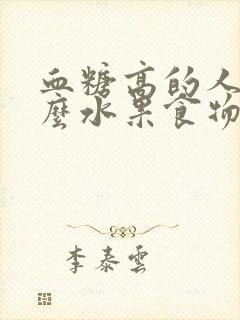 血糖高的人
麼水果食物
李泰雲